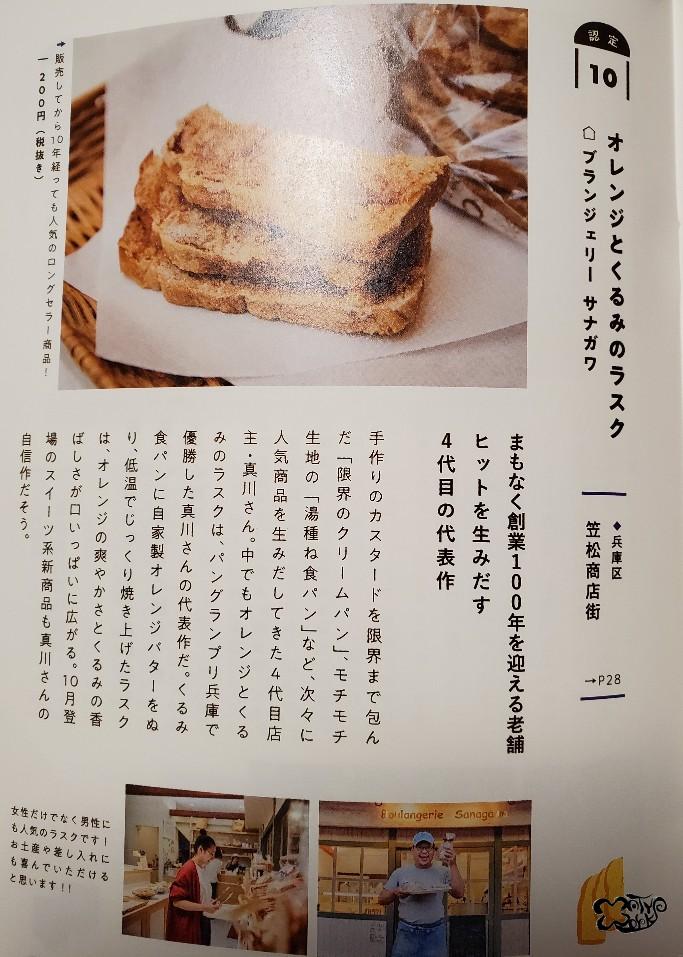 認定
10
オレンジとくるみのラスク
ブランジェリー サナガワ
◆兵庫区
笠松商店街
→P28
➡販売してから10年経っても人気のロングセラー商品!
ー200円(税抜き)
まもなく創業100年を迎える老舗
ヒットを生みだす
4代目の代表作
手作りのカスタードを限界まで包ん
だ「限界のクリームパン」、モチモチ
生地の「湯種ね食パン」など、次々に
人気商品を生みだしてきた4代目店
主・真川さん。中でもオレンジとくる
みのラスクは、パングランプリ兵庫で
優勝した真川さんの代表作だ。くるみ
食パンに自家製オレンジバターをぬ
り、低温でじっくり焼き上げたラスク
は、オレンジの爽やかさとくるみの香
ばしさが口いっぱいに広がる。10月登
場のスイーツ系新商品も真川さんの
自信作だそう。
Boulangerie Sanagawa
女性だけでなく男性に
も人気のラスクです!
お土産や差し入れに
も喜んでいただける
と思います!!